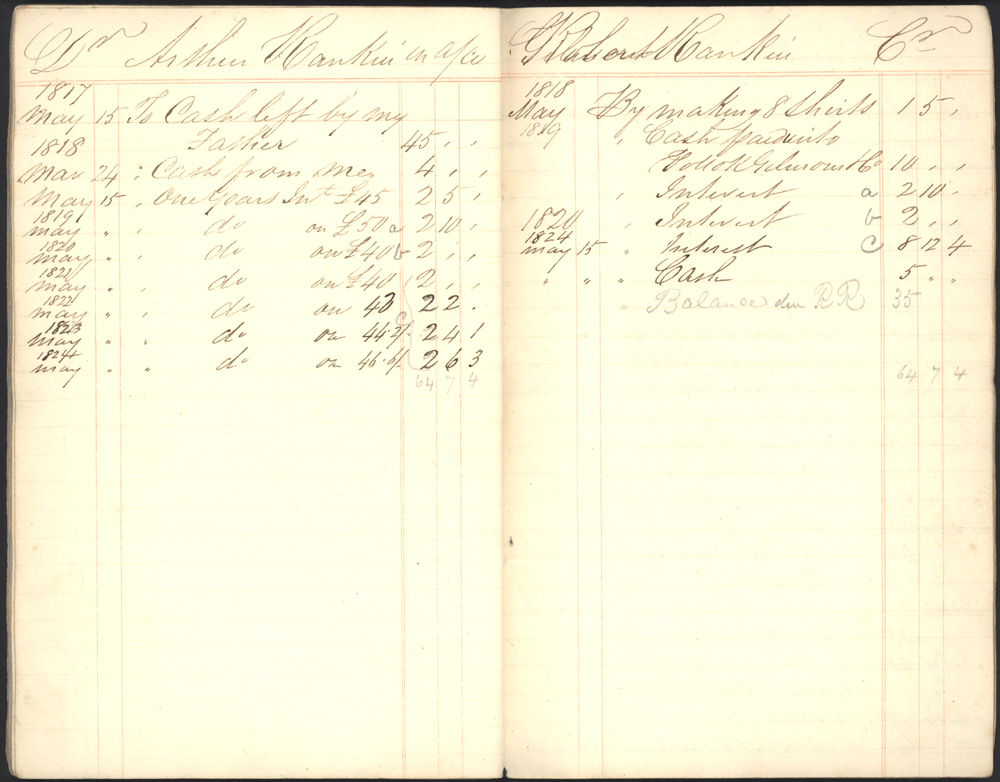 Dr Arthur Rankin in a/c
1817
May 15 To Cash left by my
1818 Father 45 , ,
Mar 24 : Cash from me 4 , ,
May 15 , One Years Int £45 2 5 ,
1819
May " , do on £50 a 2 10 ,
1820
May " , do on £40 b 2 , ,
1821
May " , do on £40 2 , ,
1822
May " , do on 42 2 2 .
1823 c
May " " do on 44.2/ 2 4 1
1824
May " " do on 46.6/ 2 6 3
64 7 4
Rankin Cr
1818
May By making 8 Shirts 1 5 ,
1819 , Cash paid into
Pollok Gilmour & Co 10 , ,
, Interest a 2 10 ,
1820 , Interest b 2 , ,
1824
May 15 , Interest c 8 12 4
" " " Cash 5 " "
" Balance due RR 35
64 7 4